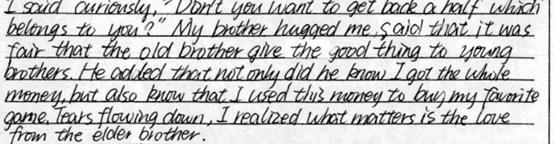 I said curiously, "Don't you want to get back a half which
belongs to you?" My brother hugged me, said that it was
fair that the old brother give the good thing to young
brothers. He added that not only did he know I got the whole
money, but also know that I used this money to buy my favorite
game. Tears flowing down, I realized what matters is the love
from the elder brother.